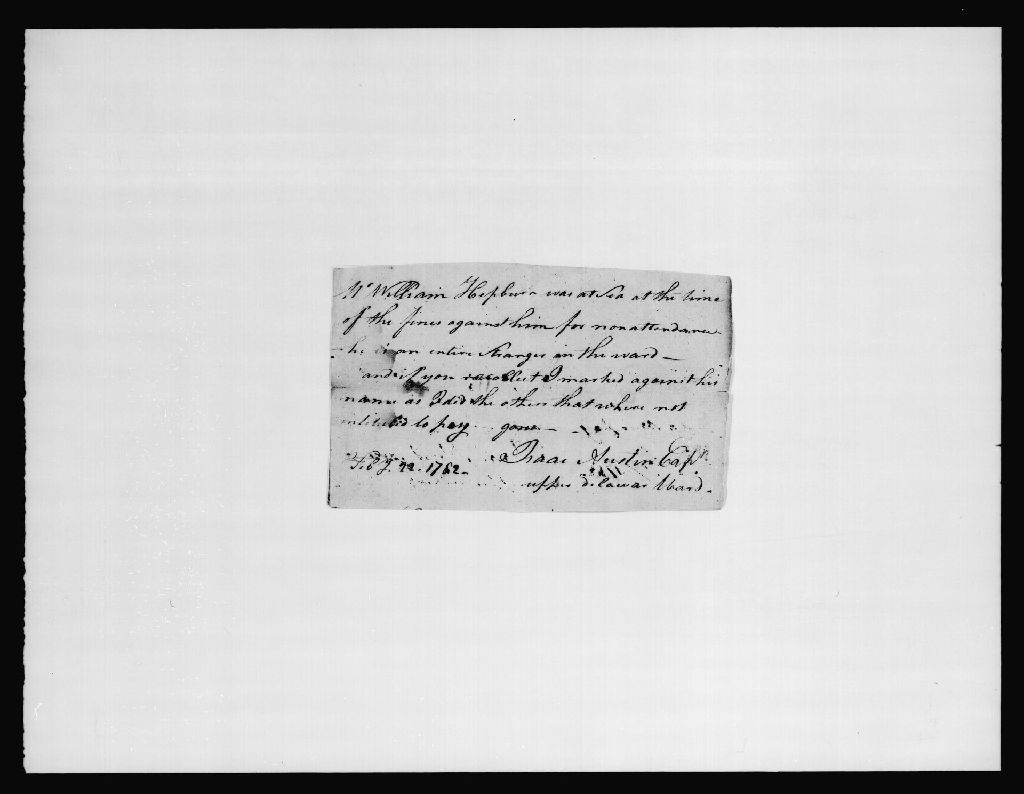 Mr William Hepburn was at Sea at the time
of the fines against him for nonattendance
he is an entire stranger in the ward —
and if you recollect I marked against his
name as I did the others that where not
intitled to pay gone —
Feb 1782 - Isaac Austin Capt
upper delawar Ward -